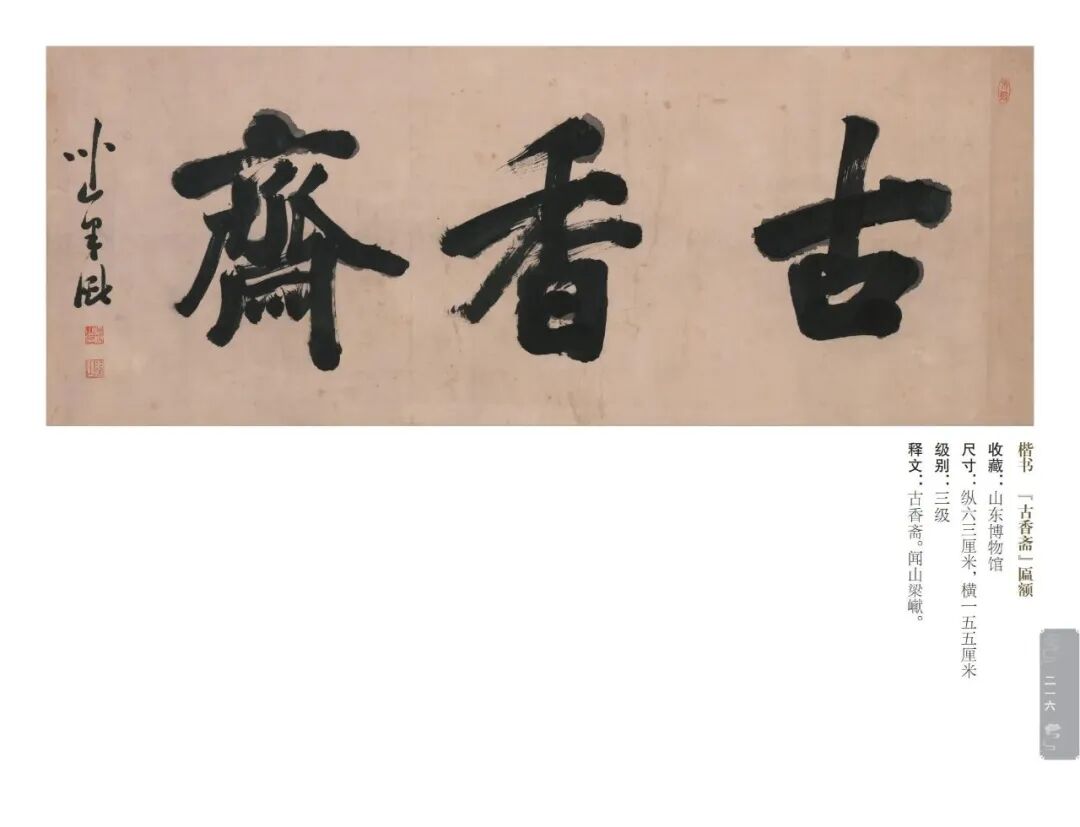 古香齋
聞山梁巘
楷书 『古香斋』匾额
收藏：山东博物馆
尺寸：纵六三厘米，横一五五厘米
级别：三级
释文：古香斋。闻山梁巘。
二一六